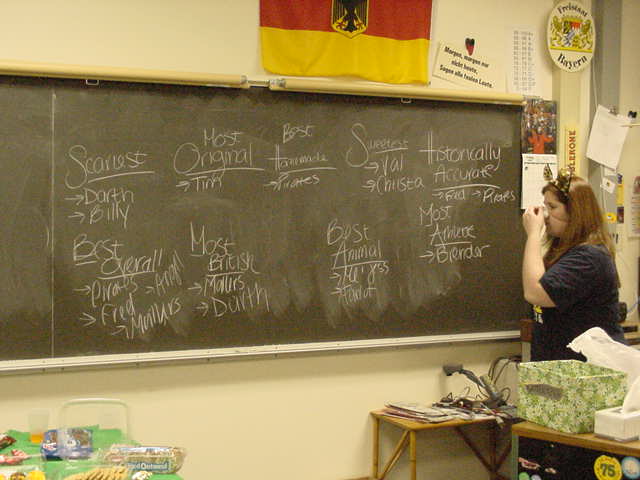 Freistaat
Bayern
Morgen, morgen nur
nicht heute,
Sagen alle faulen Leute.
Scariest
→Darth
→Billy
Most
Original
→Tim
Best
Homemade
→Pirates
Sweetest
→Val
→Christa
Historically
Accurate
→Fred →Pirates
Best
Overall
→Pirates →Angel
→Fred
→
Most
British
→
→Darth
Best
Animal
→
→
Most
Athlete
→Brender
75